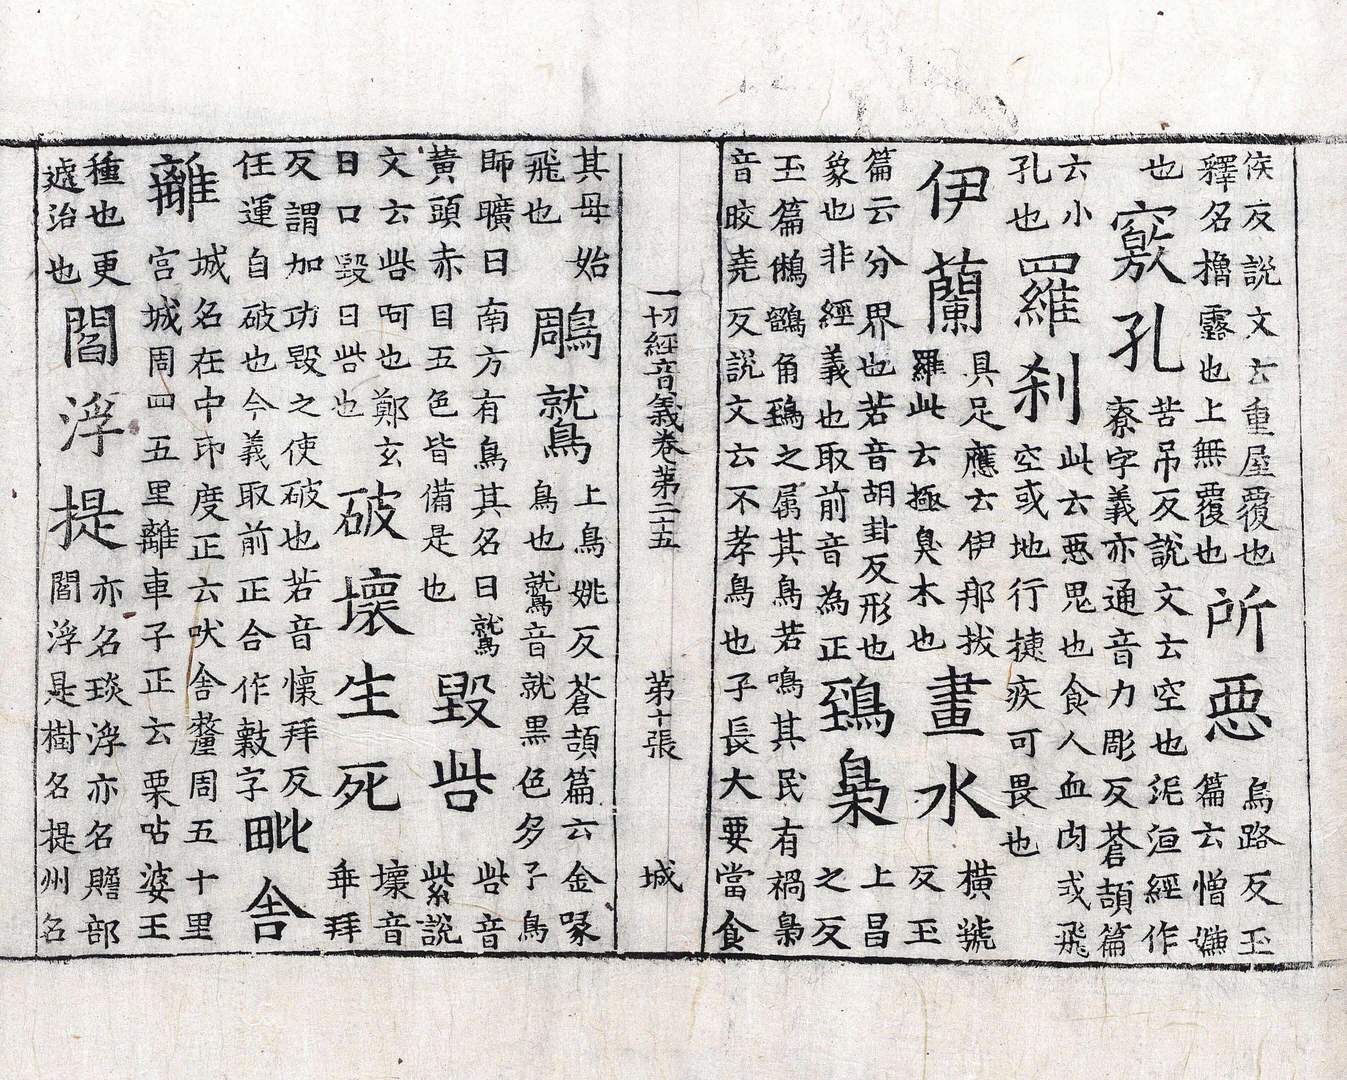 侯反說文云重屋覆也
釋名櫓露也上無覆也
所惡
烏路反玉
篇云憎嫌
也
竅孔
苦吊反說文云空也泥洹經作
寮字義亦通音力彫反蒼頡篇
云小
孔也
羅刹
此云惡鬼也食人血肉或飛
空或地行揵疾可畏也
伊蘭
具足應云伊那拔
羅此云極臭木也
畫水
橫虢
反玉
篇云分界也若音胡封反形也
象也非經義也取前音為正
鵄梟
上昌
之反
玉篇鵂鶹角鵄之属其鳥若鳴其民有禍梟
音晈尭反說文云不孝鳥也子長大要當食
一切經音義卷第二十五 第十張 城
其母始
飛也
鵰鷲
上鳥姚反蒼頡篇云金喙
鳥也鷲音就黑色多子鳥
師曠曰南方有鳥其名曰鷲
黄頭赤目五色皆備是也
毀呰
呰音
紫說
文云呰呵也鄭玄
曰口毀曰呰也
破壞生死
壞音
乖拜
反謂加功毀之使破也若音懷拜反
任運自破也今義取前正合作敤字
毗舍
離
城名在中印度正云吠舍釐周五十里
宮城周四五里離車子正云栗呫婆王
種也更
遞治也
閻浮提
亦名琰浮亦名贍部
閻浮是樹名提州名